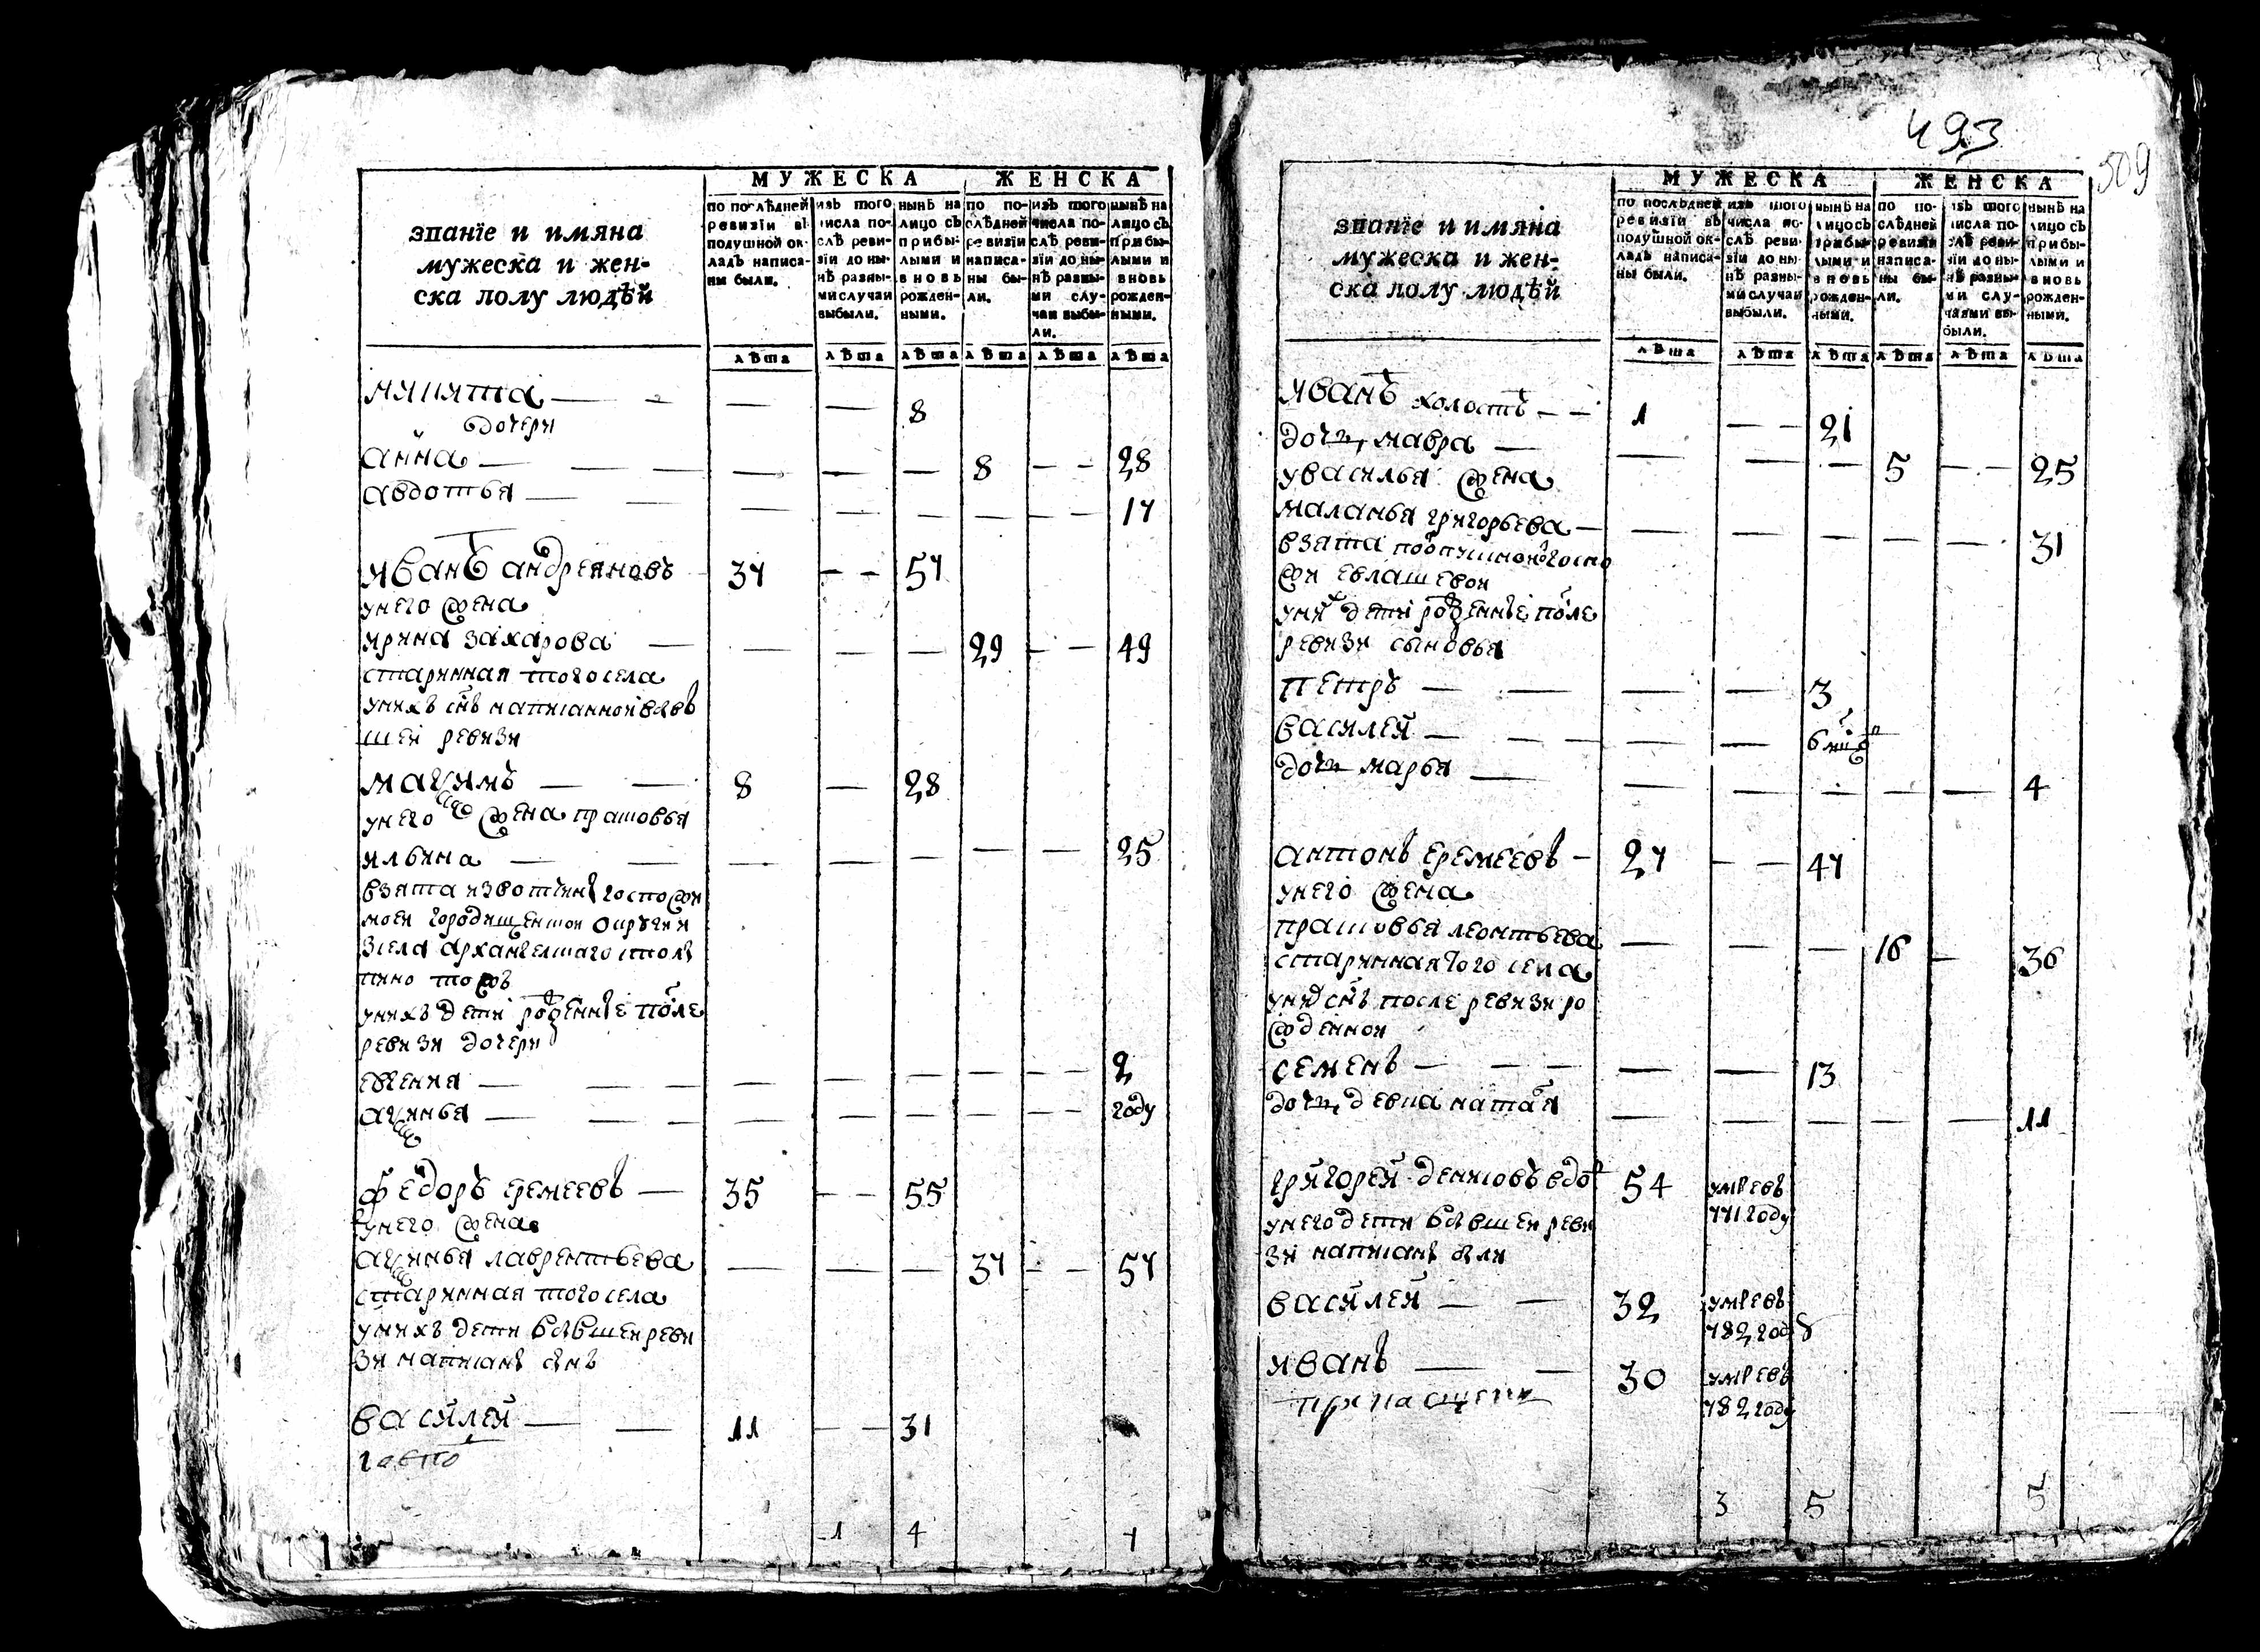 званїе и имяна
мужеска и жен-
ска полу людѣй
МУЖЕСКА
по послѣдней ревизїи въ подушной ок-ладъ написа-ны были.
изъ того числа по-слѣ реви-зїи до ны-нѣ разны-ми случаи выбыли.
нынѣ на лицо съ прибы-лыми и вновь рожден-ными.
ЖЕНСКА
по по-слѣдней ревизїи написа-ны бы-ли.
изъ того числа по-слѣ реви-зїи до ны-нѣ разны-ми слу-чаи выбы-ли.
нынѣ на лицо съ прибы-лыми и вновь рожден-ными.
лѣта лѣта лѣта лѣта лѣта лѣта
никита — — — — 8
дочери
анна — — — — — — 8 — — 28
авдотья — — — — — — — — 17
иванъ андреяновъ 37 — — 57
унего жена
ирина захарова — — — — 29 — — 49
старинная тогосела
унихъ снъ написанной вбыв
шеи ревизи
максимъ — — 8 — 28
унего жена прасковья
ильина — — — — — — — 25
взята извотчины госпожи
моеи городищенской округи
села архангелскаго
тожъ
унихъ дети рожденные после
ревизи дочери
евгения — — — — — — — — — 2
аксинья — — — — — — — — году
федоръ еремеевъ — 35 — — 55
унего жена
аксинья лаврентьева — — — 37 — — 57
старинная тогосела
унихъ дети вбывшеи реви
зи написаны снъ
василей — — 11 — — 31
1 4 7
493
509
званїе и имяна
мужеска и жен-
ска полу людѣй
МУЖЕСКА
по послѣдней ревизїи въ подушной ок-ладъ написа-ны были.
изъ того числа по-слѣ реви-зїи до ны-нѣ разны-ми случаи выбыли.
нынѣ на лицо съ прибы-лыми и вновь рожден-ными.
ЖЕНСКА
по по-слѣдней ревизїи написа-ны бы-ли.
изъ того числа по-слѣ реви-зїи до ны-нѣ разны-ми слу-чаями вы-были.
нынѣ на лицо съ прибы-лыми и вновь рожден-ными.
лѣта лѣта лѣта лѣта лѣта лѣта
иванъ холостъ — — 1 — — 21
дочь мавра — — — — 5 — — 25
увасилья жена
маланья григорьева — — — — — — 31
взята поотпускной госпо
жи евлашевой
уних дети рожденные после
ревизи сыновья
петръ — — — — 3
василей — — — — — 6
дочь марья — — — — — — 4
антонъ еремеевъ — 27 — — 47
унего жена
прасковья леонтьева — — — 16 — 36
старинная того села
уних снъ после ревизи ро
жденной
семенъ — — — — — 13
дочь девка наталя — — — — — 11
григорей денисовъ вдов 54 умревъ 771 году
унего дети вбывшеи реви
зи написаны были
василей — — 32 умревъ 782 году
иванъ — — 30 умревъ 782 году
3 5 5